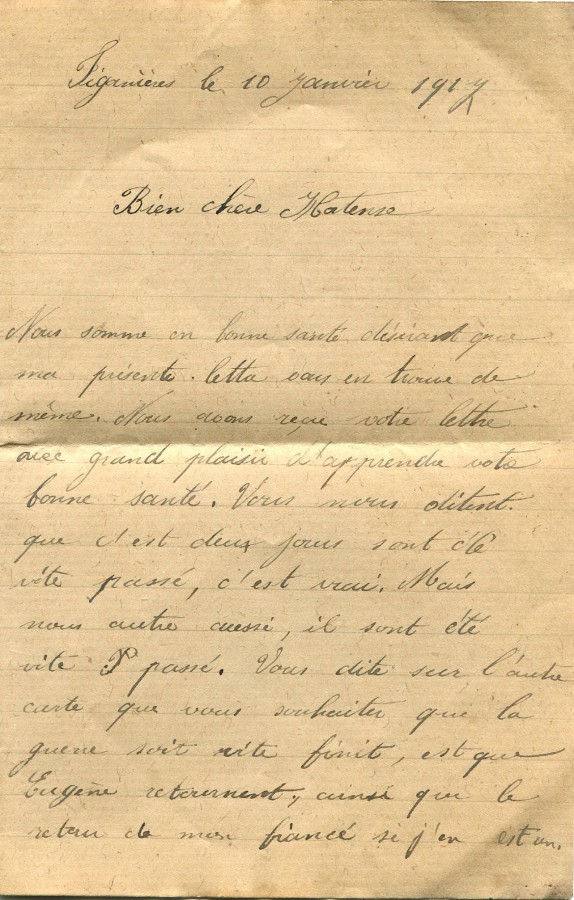 Figanières le 10 Janvier 1917
Bien chère Hortense
Nous somme en bonne santé désirant que
ma présente lettre vous en trouve de
même. Nous avons reçue votre lettre
avec grand plaisir d'apprendre votre
bonne santé. Vous nous ditent.
que c'est deux jours sont été
vite passé, c'est vrai. Mais
nous autre aussi, il sont été
vite passé. Vous dite sur l'autre
carte que vous souhaiter que la
guerre soit vite finit, est que
Eugène retournent, ainsi que le
retour de mon fiancé si j'en est un.